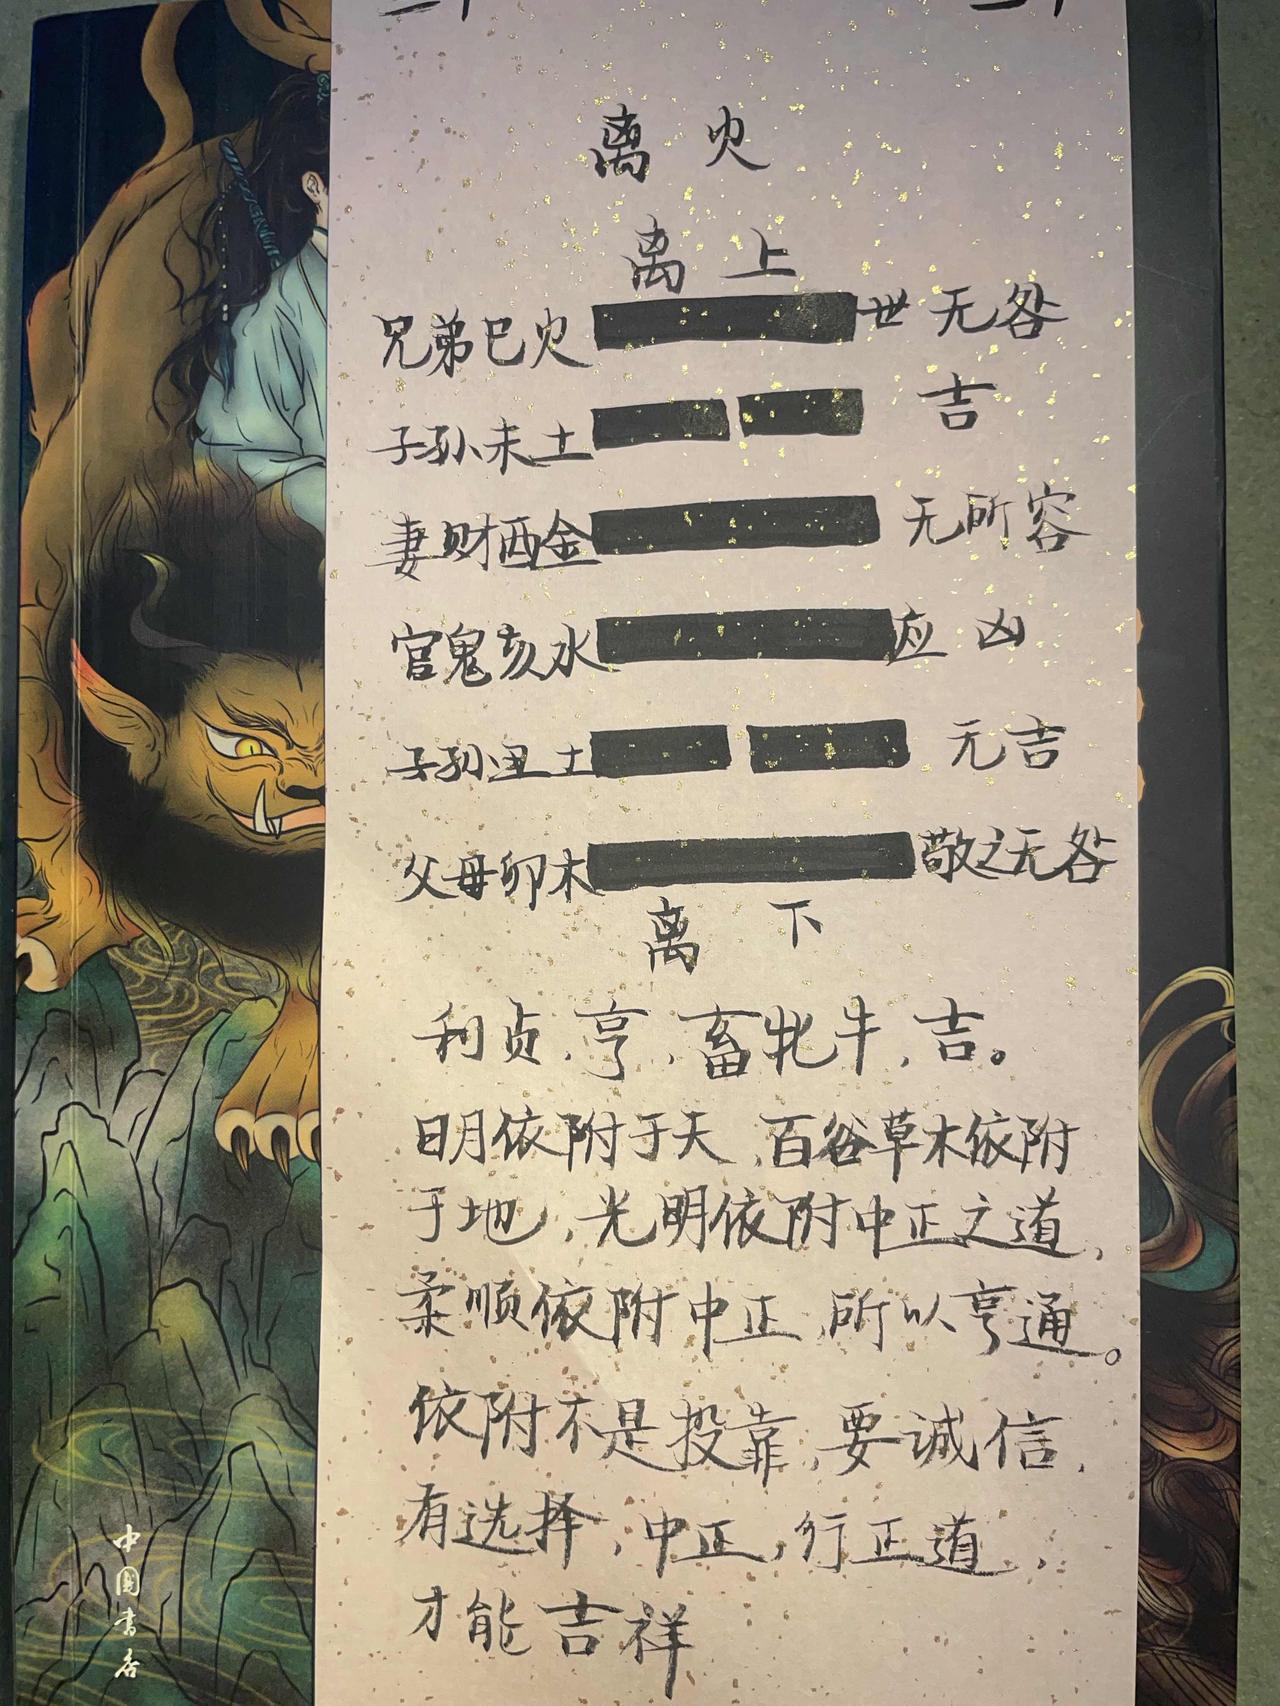 离火
离上
兄弟巳火 世 无咎
子孙未土 吉
妻财酉金 无所容
官鬼亥水 应 凶
子孙丑土 元吉
父母卯木 敬之无咎
离 下
利贞,亨,畜牝牛,吉。
日月依附于天,百谷草木依附
于地,光明依附中正之道,
柔顺依附中正,所以亨通。
依附不是投靠,要诚信,
有选择,中正,行正道,
才能吉祥
中国书店